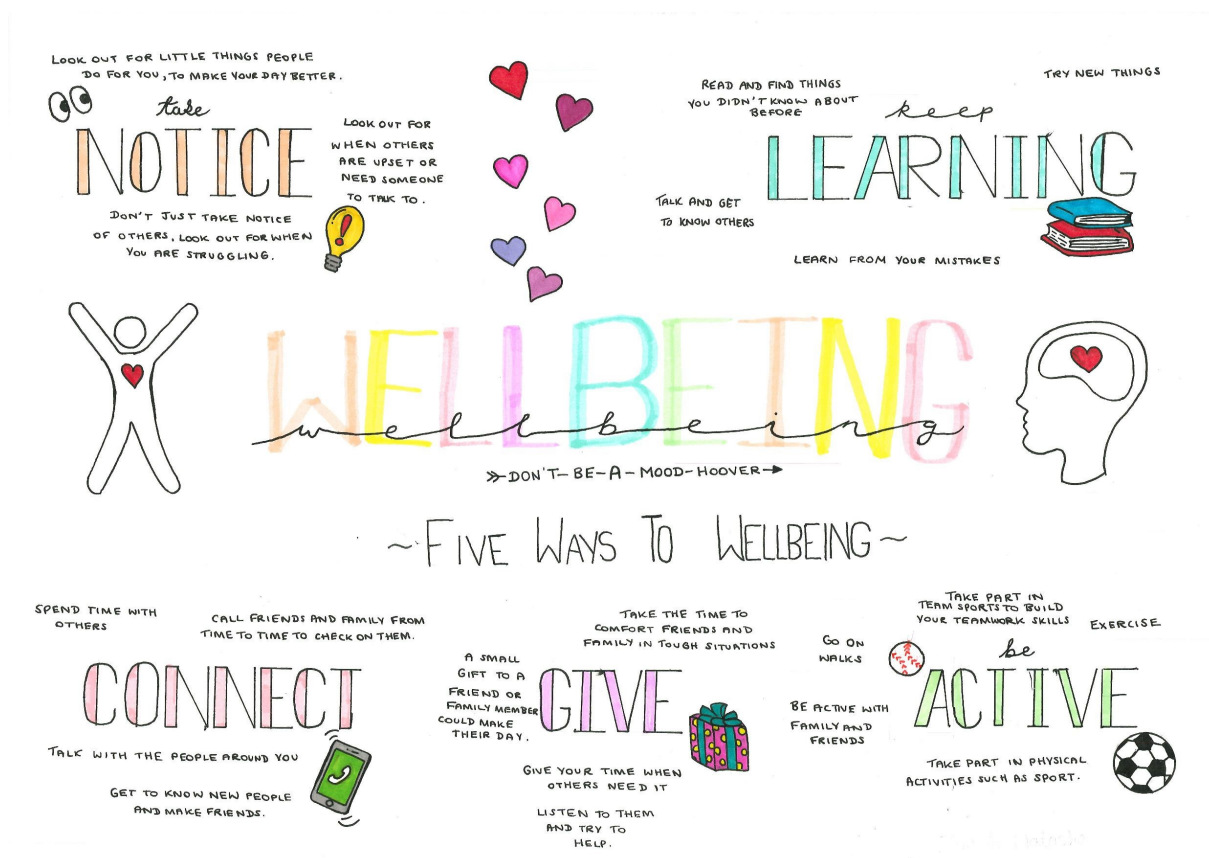 LOOK OUT FOR LITTLE THINGS PEOPLE
DO FOR YOU, TO MAKE YOUR DAY BETTER.
take
NOTICE
LOOK OUT FOR
WHEN OTHERS
ARE UPSET OR
NEED SOMEONE
TO TALK TO.
DON'T JUST TAKE NOTICE
OF OTHERS, LOOK OUT FOR WHEN
YOU ARE STRUGGLING.
READ AND FIND THINGS
YOU DIDN'T KNOW ABOUT
BEFORE
TRY NEW THINGS
keep
LEARNING
TALK AND GET
TO KNOW OTHERS
LEARN FROM YOUR MISTAKES
WELLBEING
wellbeing
DON'T-BE-A-MOOD-HOOVER
~FIVE WAYS TO WELLBEING~
SPEND TIME WITH
OTHERS
CALL FRIENDS AND FAMILY FROM
TIME TO TIME TO CHECK ON THEM.
CONNECT
TALK WITH THE PEOPLE AROUND YOU
GET TO KNOW NEW PEOPLE
AND MAKE FRIENDS.
TAKE THE TIME TO
COMFORT FRIENDS AND
FAMILY IN TOUGH SITUATIONS
A SMALL
GIFT TO A
FRIEND OR
FAMILY MEMBER
COULD MAKE
THEIR DAY.
GIVE
GIVE YOUR TIME WHEN
OTHERS NEED IT
LISTEN TO THEM
AND TRY TO
HELP.
TAKE PART IN
TEAM SPORTS TO BUILD
YOUR TEAMWORK SKILLS
EXERCISE
GO ON
WALKS
be
ACTIVE
BE ACTIVE WITH
FAMILY AND
FRIENDS
TAKE PART IN PHYSICAL
ACTIVITIES SUCH AS SPORT.